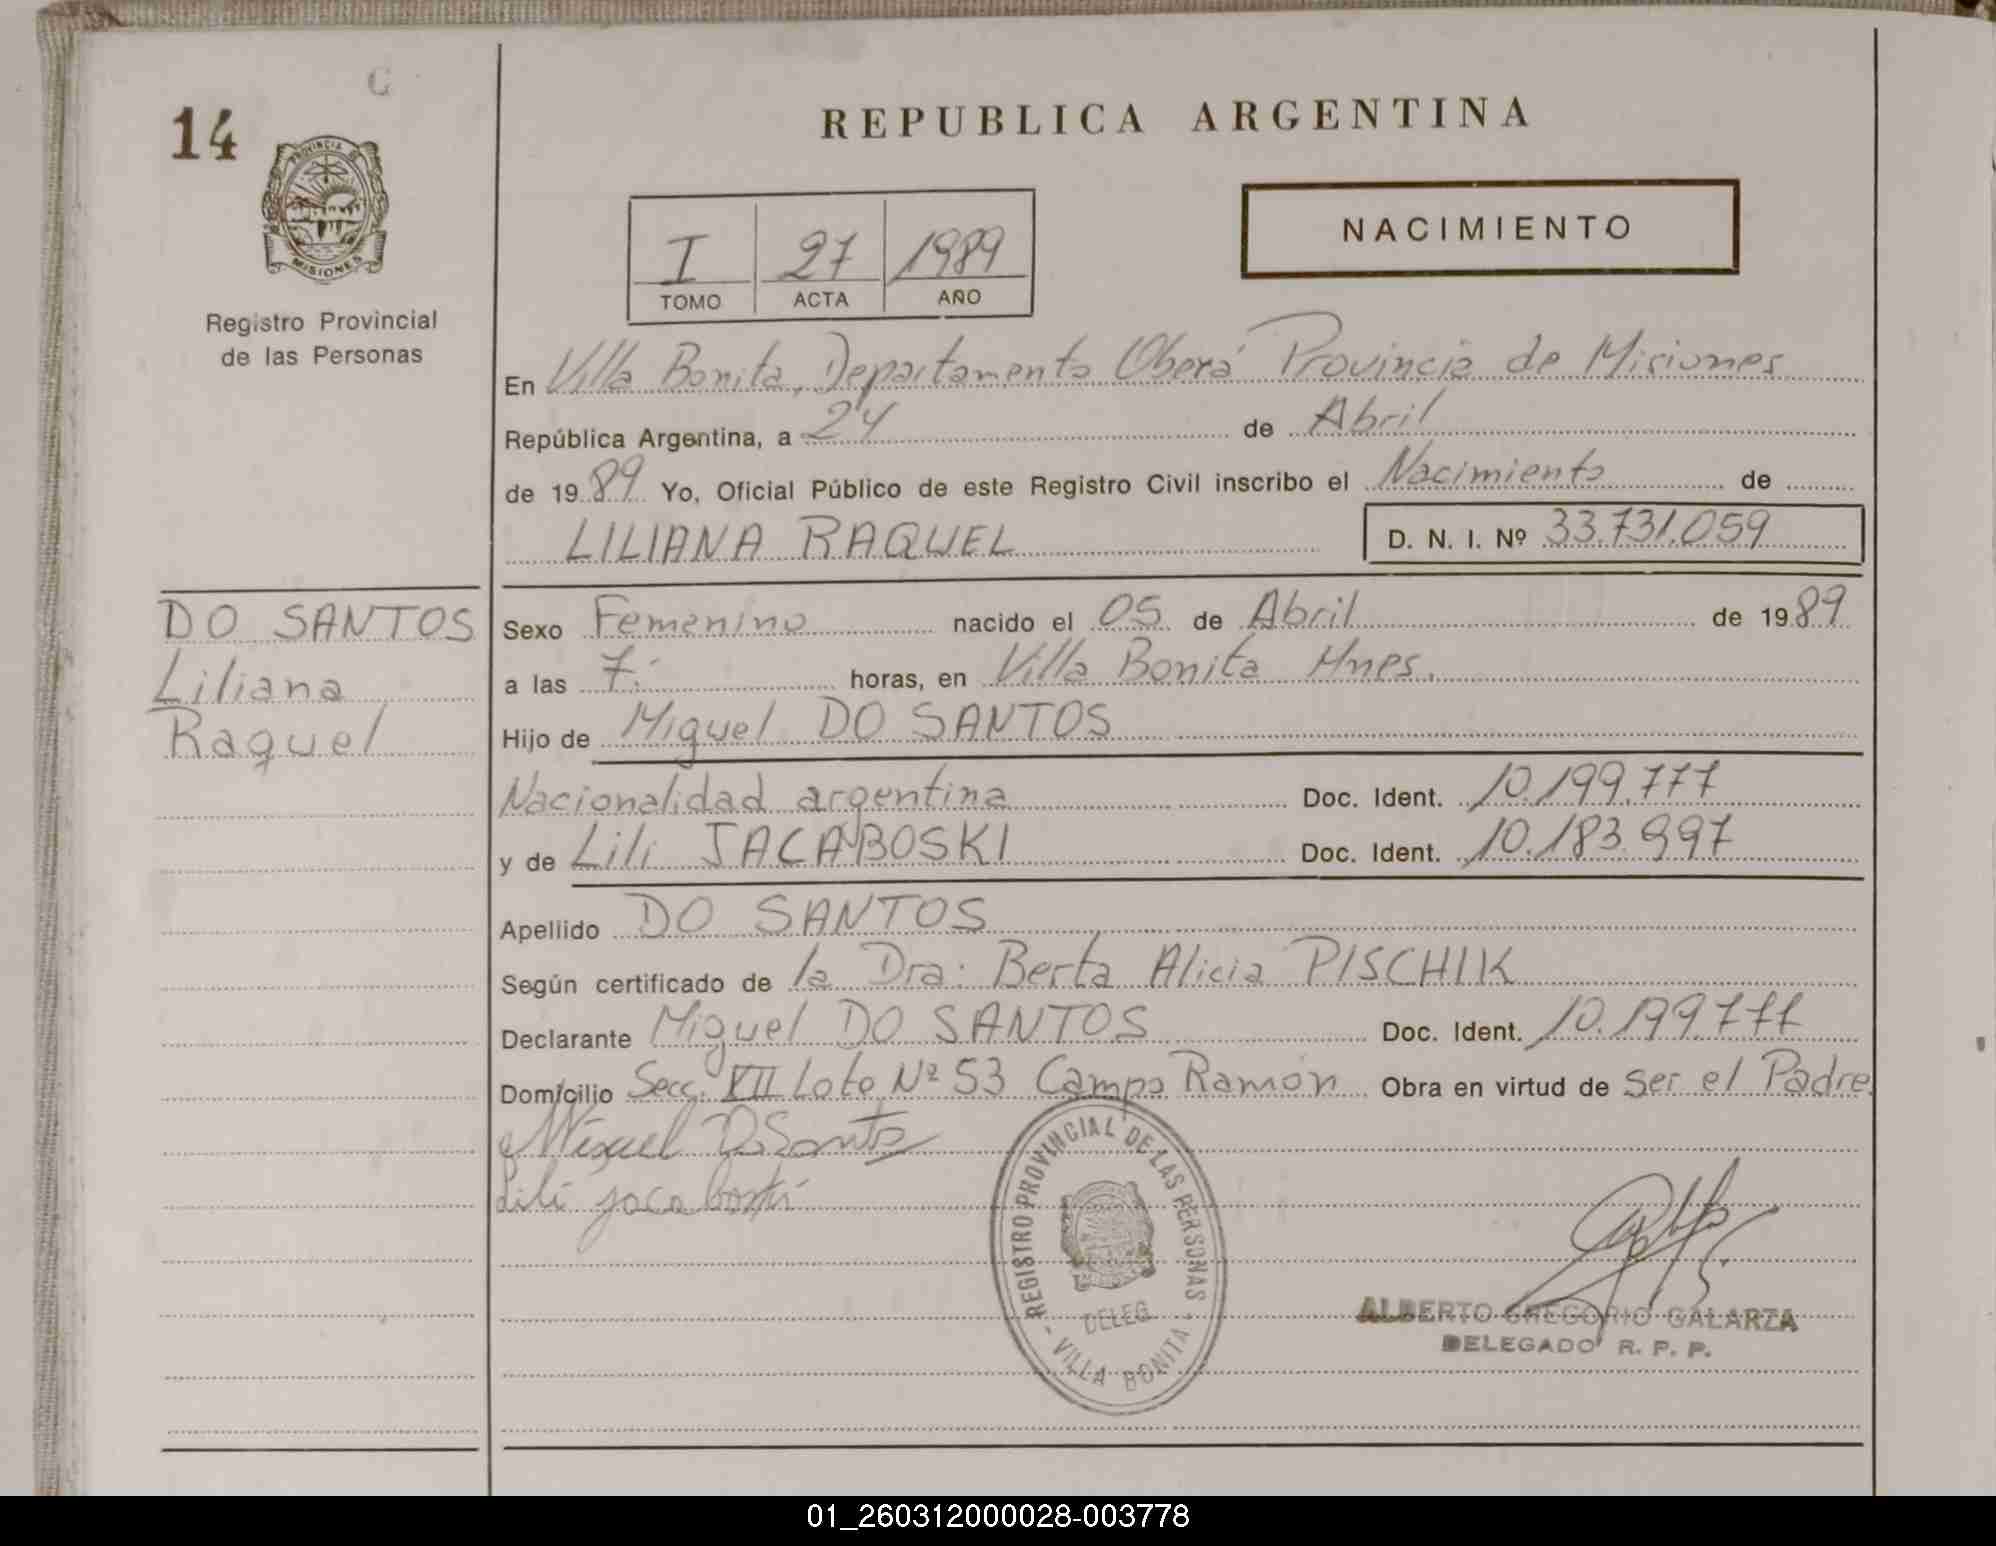 14
PROVINCIA DE
MISIONES
Registro Provincial
de las Personas
REPUBLICA ARGENTINA
I 27 1989
TOMO ACTA AÑO
NACIMIENTO
En Villa Bonita, Departamento Oberá Provincia de Misiones
República Argentina, a 24 de Abril
de 1989 Yo, Oficial Público de este Registro Civil inscribo el Nacimiento de
LILIANA RAQUEL D. N. I. Nº 33.731.059
DO SANTOS
Liliana
Raquel
Sexo Femenino nacido el 05 de Abril de 1989
a las 7: horas, en Villa Bonita Mnes.
Hijo de Miguel DO SANTOS
Nacionalidad argentina Doc. Ident. 10.199.777
y de Lili JACABOSKI Doc. Ident. 10.183.997
Apellido DO SANTOS
Según certificado de la Dra: Berta Alicia PISCHIK
Declarante Miguel DO SANTOS Doc. Ident. 10.199.777
Domicilio Secc. VII Lote Nº 53 Campo Ramón Obra en virtud de ser el Padre
Miguel DSantos
Lili Jacaboski
REGISTRO PROVINCIAL DE LAS PERSONAS
DELEG
- VILLA BONITA -
ALBERTO GREGORIO GALARZA
DELEGADO R. P. P.
01_260312000028-003778